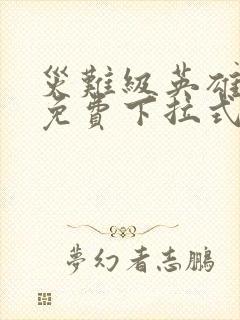 災難級英雄
免費下拉式
夢幻者志鵬